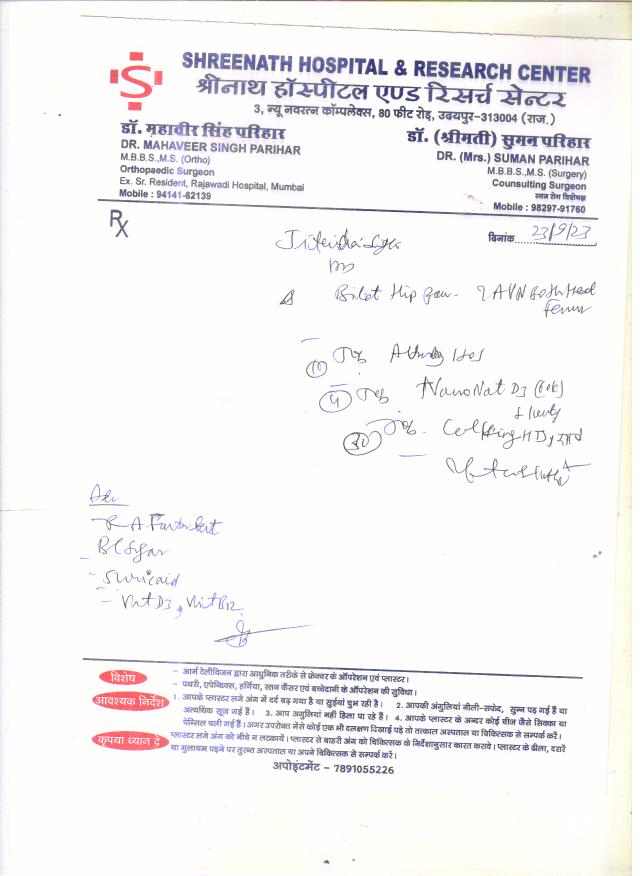 SHREENATH HOSPITAL & RESEARCH CENTER
श्रीनाथ हॉस्पीटल एण्ड रिसर्च सेन्टर
3, न्यू नवरत्न कॉम्पलेक्स, 80 फीट रोड़, उदयपुर-313004 (राज.)
डॉ. महावीर सिंह परिहार
DR. MAHAVEER SINGH PARIHAR
M.B.B.S.,M.S. (Ortho)
Orthopaedic Surgeon
Ex. Sr. Resident, Rajawadi Hospital, Mumbai
Mobile : 94141-62139
डॉ. (श्रीमती) सुमन परिहार
DR. (Mrs.) SUMAN PARIHAR
M.B.B.S.,M.S. (Surgery)
Counsulting Surgeon
स्तन रोग विशेषज्ञ
Mobile : 98297-91760
Rx
दिनांक 23/9/23
Hip AVN Both Head
Femur
10
4 NanoNat D3 (60k)
30
Adv
R A Factor
Bl Sugar
Vit D3, Vit B12
विशेष
- आर्म टेलीविजन द्वारा आधुनिक तरीके से फ्रेक्चर के ऑपरेशन एवं प्लास्टर।
- पथरी, एपेन्डिक्स, हर्णिया, स्तन कैंसर एवं बच्चेदानी के ऑपरेशन की सुविधा।
आवश्यक निर्देश
1. आपके प्लास्टर लगे अंग में दर्द बढ़ गया है या सुईयां चुभ रही है। 2. आपकी अंगुलियां नीली-सफेद, सुन्न पड़ गई हैं या
अत्यधिक सूज गई हैं। 3. आप अगुलियां नहीं हिला पा रहे हैं। 4. आपके प्लास्टर के अन्दर कोई चीज जैसे सिक्का या
पेन्सिल चली गई हैं। अगर उपरोक्त में से कोई एक भी लक्षण दिखाई पड़े तो तत्काल अस्पताल या चिकित्सक से सम्पर्क करें।
कृपया ध्यान दें
प्लास्टर लगे अंग को नीचे न लटकायें। प्लास्टर से बाहरी अंग को चिकित्सक के निर्देशानुसार कसरत करावे। प्लास्टर के ढीला, दरारें
या मुलायम पड़ने पर तुरन्त अस्पताल या अपने चिकित्सक से सम्पर्क करें।
अपोइंटमेंट - 7891055226